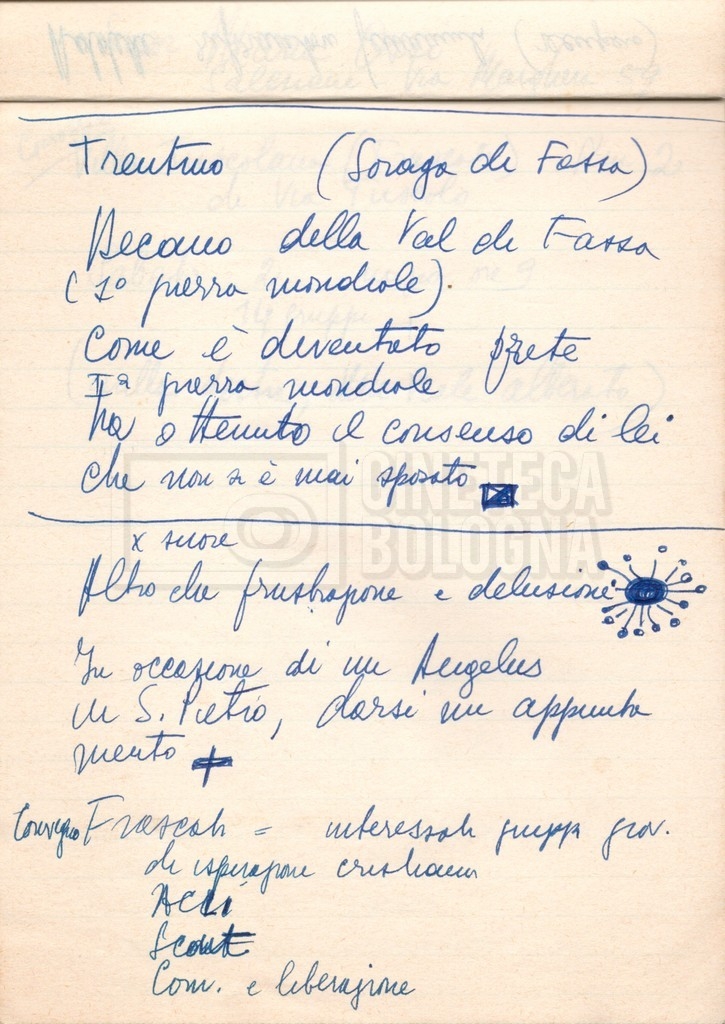 Trentino (Soraga di Fassa)
Decano della Val di Fassa
(1° guerra mondiale).
Come è diventato prete
IIª guerra mondiale
ha ottenuto il consenso di lei
che non si è mai sposato
x suore
Altro che frustrazione e delusione
In occasione di un Angelus
in S. Pietro, darsi un appunta
mento
Convegno Frascati = interessati gruppi giov.
di ispirazione cristiana
ACLI
Scout
Com. e liberazione
CINETECA
BOLOGNA